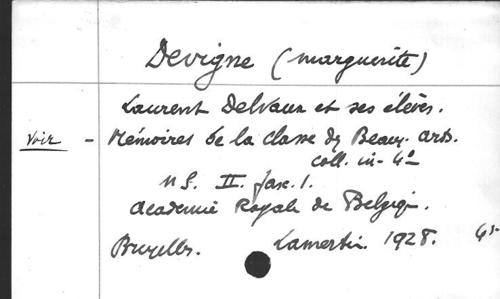 Devigne (Marguerite)
Laurent Delvaux et ses élèves.
Voir - Mémoires de la classe des Beaux. arts.
coll. in-4º
N S. II. fasc. 1.
Academie Royale de Belgiq.
Bruxelles. Lamertin. 1928.